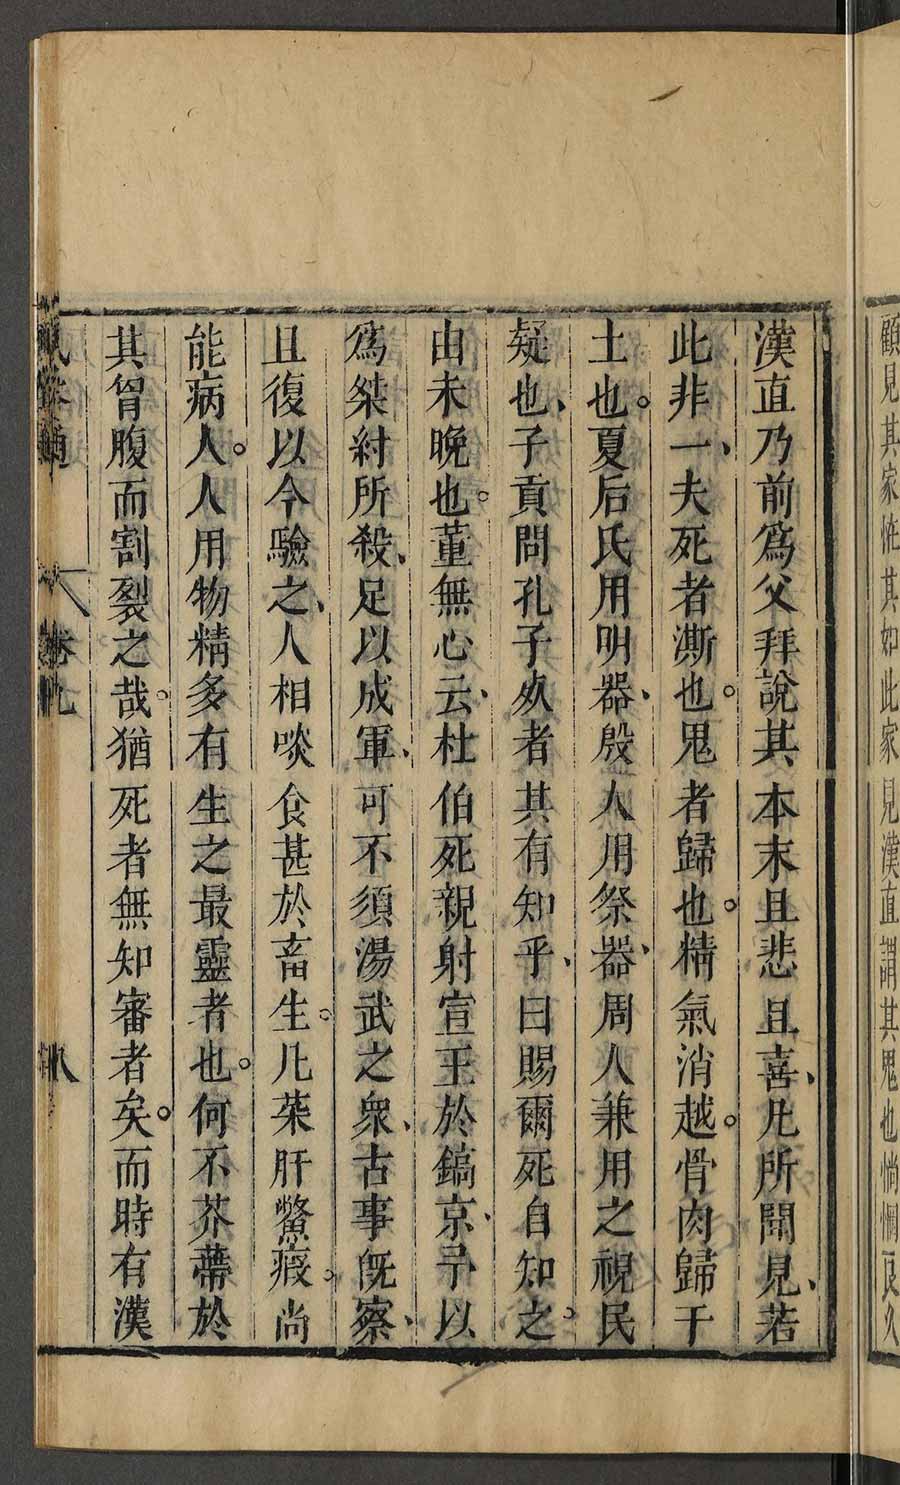 顧見其家恠其如此家見漢直謂其鬼也惝惘良久
漢直乃前爲父拜說其本末且悲且喜、凡所聞見、若
此非一、夫死者澌也。鬼者歸也。精氣消越。骨肉歸于
土也。夏后氏用明器、殷人用祭器、周人兼用之視民
疑也、子貢問孔子㱙者其有知乎、曰賜爾死自知之。
由未晚也。董無心云、杜伯死親射宣王於鎬京、予以
爲桀紂所殺、足以成軍、可不須湯武之衆、古事旣察、
且復以今驗之、人相啖食甚於畜生。凡菜肝鱉瘕。尚
能病人。人用物精多有生之最靈者也。何不芥蔕於
其胷腹而割裂之哉。猶死者無知審者矣。而時有漢
風俗通 卷九 八